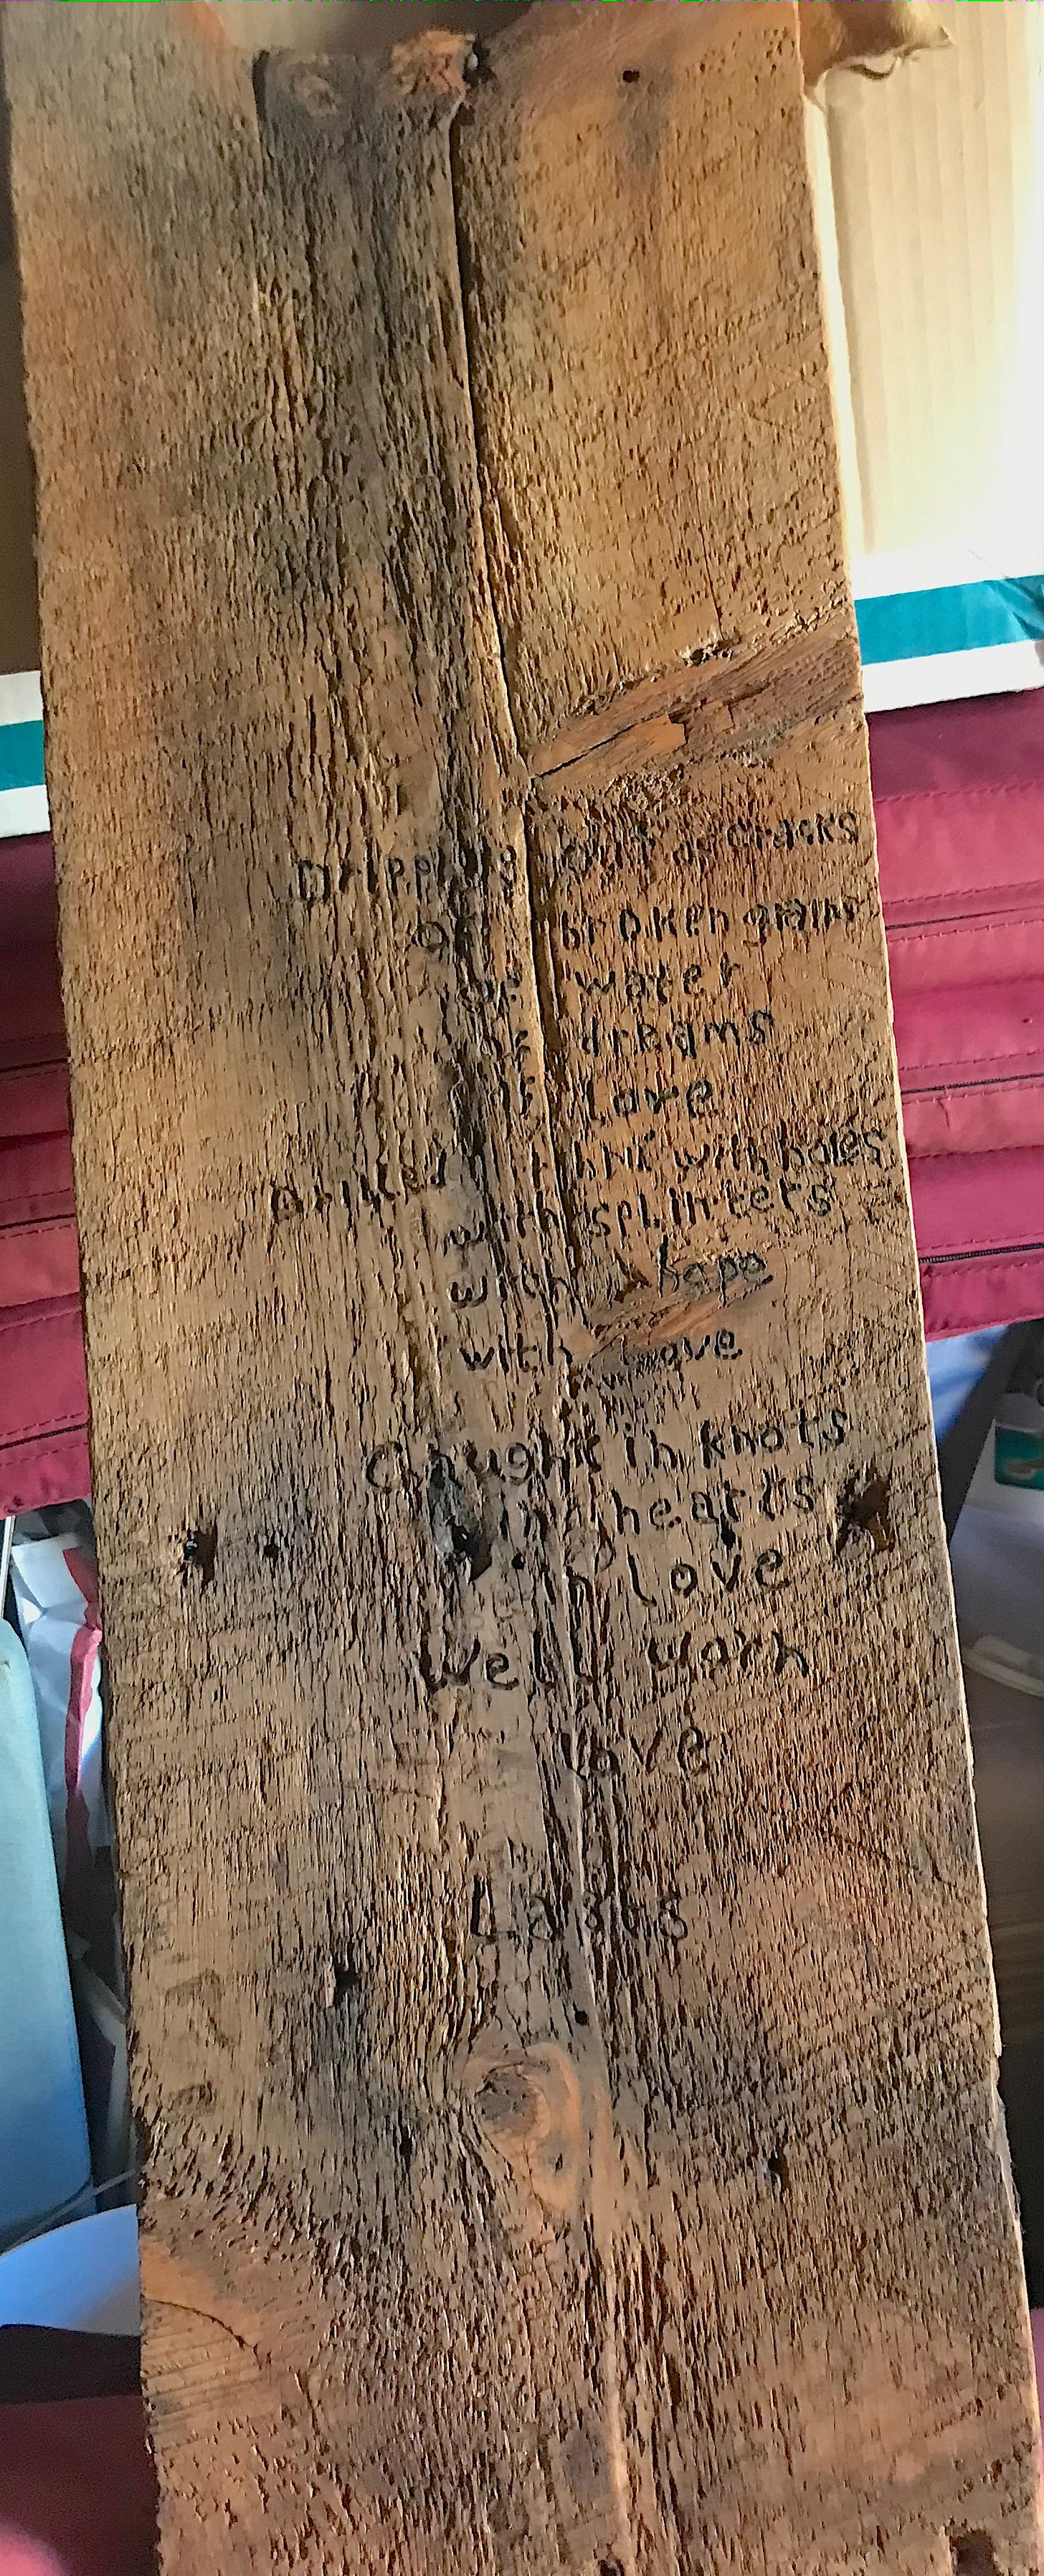 Dripping out of cracks
of broken grains
of water
of dreams
of love
Drilled with holes
with splinters
with hope
with Love
Caught in knots
in hearts
in love
Well worn
Love
Lasts